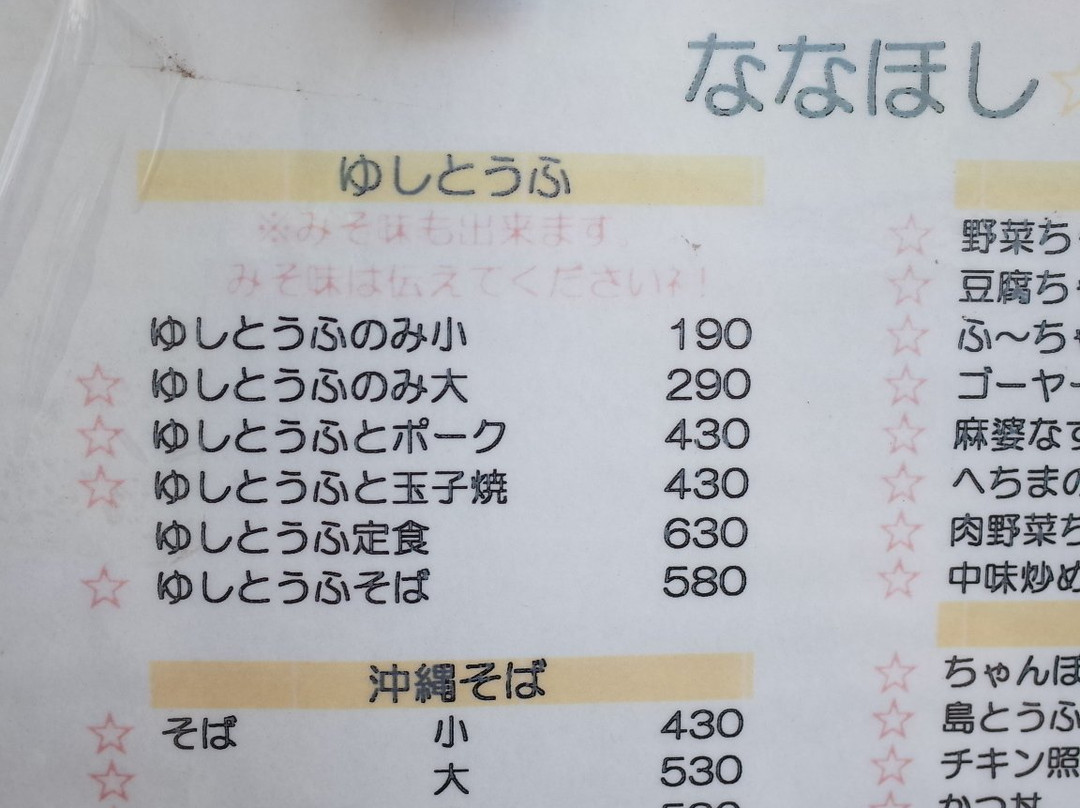 ななほし☆
ゆしとうふ
※みそ味も出来ます
みそ味は伝えてくださいネ!
ゆしとうふのみ小 190
☆ ゆしとうふのみ大 290
☆ ゆしとうふとポーク 430
☆ ゆしとうふと玉子焼 430
ゆしとうふ定食 630
☆ ゆしとうふそば 580
沖縄そば
☆ そば 小 430
☆ 大 530
☆ 野菜ち
☆ 豆腐ち
☆ ふ〜ち
☆ ゴーヤー
☆ 麻婆な
☆ へちまの
☆ 肉野菜ち
☆ 中味炒め
☆ ちゃんぽ
☆ 島とうふ
☆ チキン照
かつ丼